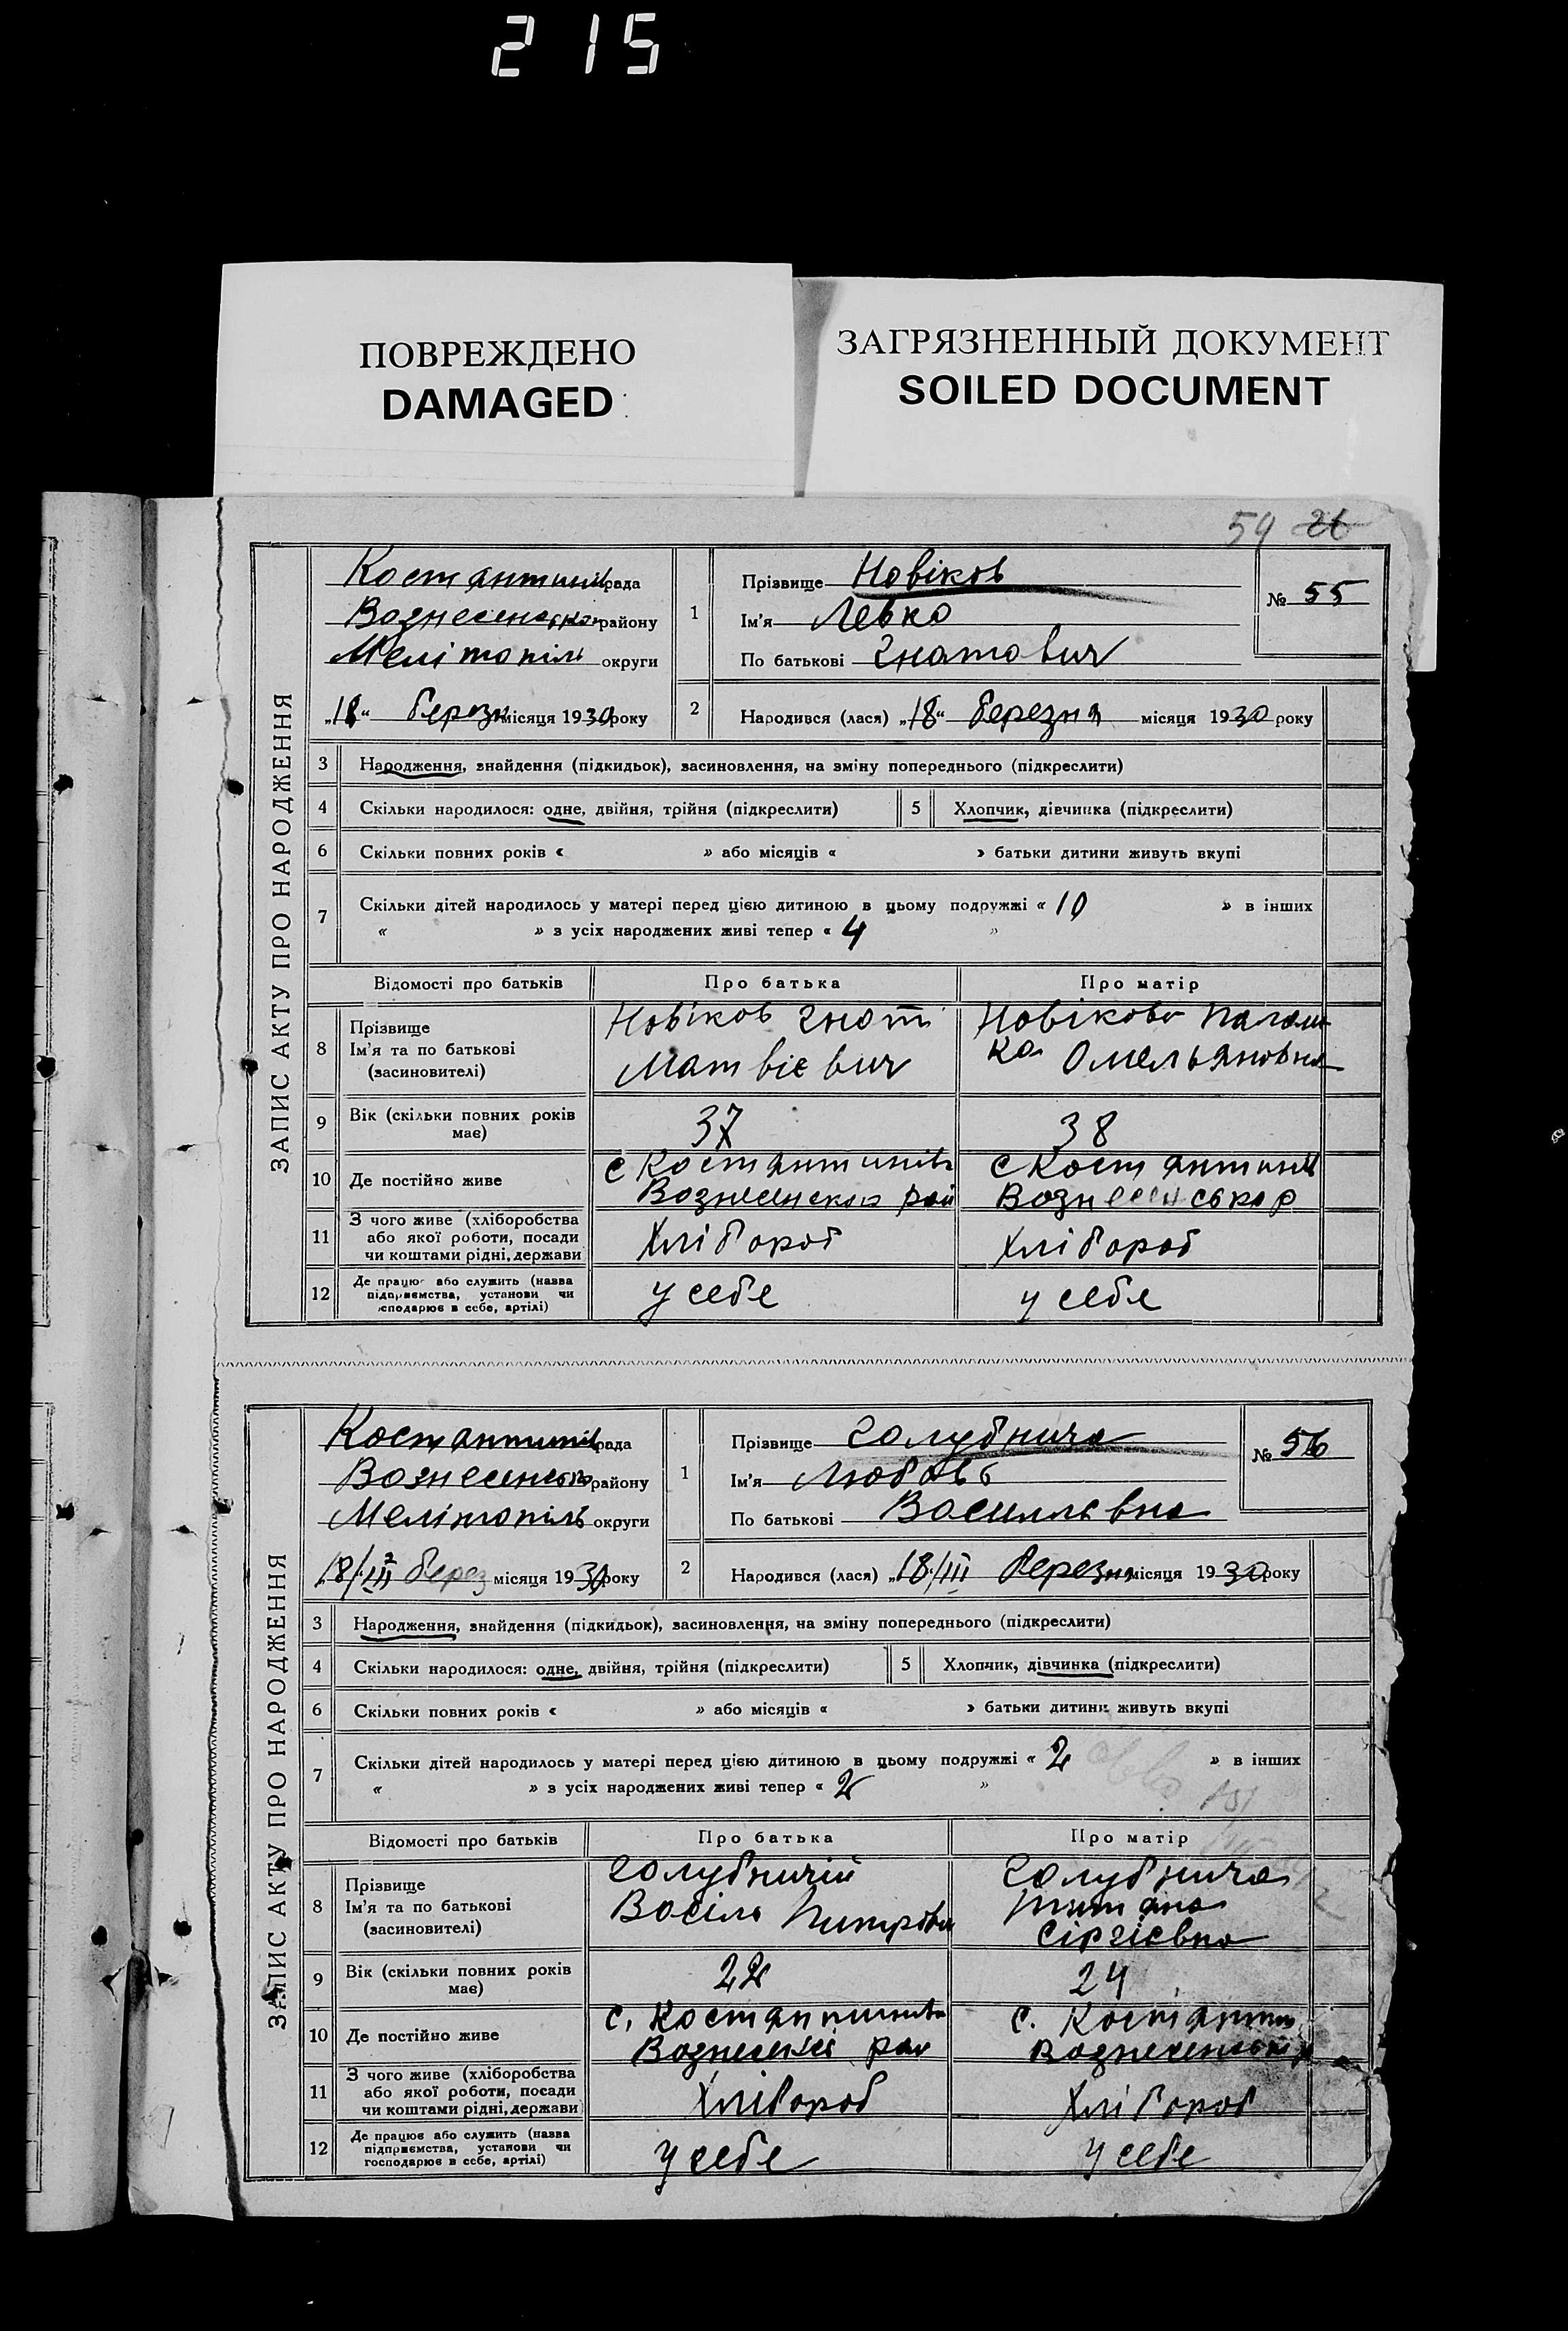 215
ПОВРЕЖДЕНО
DAMAGED
ЗАГРЯЗНЕННЫЙ ДОКУМЕНТ
SOILED DOCUMENT
59 26
ЗАПИС АКТУ ПРО НАРОДЖЕННЯ
Костянтинів рада
Вознесенського району
Мелітопіль округи
„18“ березня місяця 1930 року
1
Прізвище Новіков
Ім'я Левко
По батькові Гнатович
№ 55
2
Народився (лася) „18“ березня місяця 1930 року
3 Народження, знайдення (підкидьок), засиновлення, на зміну попереднього (підкреслити)
4 Скільки народилося: одне, двійня, трійня (підкреслити) 5 Хлопчик, дівчинка (підкреслити)
6 Скільки повних років « » або місяців « » батьки дитини живуть вкупі
7 Скільки дітей народилось у матері перед цією дитиною в цьому подружжі « 10 » в інших
« » з усіх народжених живі тепер « 4 »
Відомості про батьків Про батька Про матір
8 Прізвище
Ім'я та по батькові
(засиновителі)
Новіков Гнат
Матвієвич
Новікова Палаш
ка Омельяновна
9 Вік (скільки повних років
має)
37 38
10 Де постійно живе
с Костянтинів
Вознесенскоо рай
с Костянтинів
Возн есен ськ р
11 З чого живе (хліборобства
або якої роботи, посади
чи коштами рідні, держави
Хлібороб Хлібороб
12 Де працює або служить (назва
підприємства, установи чи
господарює в себе, артілі)
у себе у себе
ЗАПИС АКТУ ПРО НАРОДЖЕННЯ
Костянтинів рада
Вознесенськ району
Мелітопіль округи
18/III берез місяця 1930 року
1
Прізвище Голубнича
Ім'я Любовь
По батькові Васильевна
№ 56
2
Народився (лася) „18/III березня місяця 1930 року
3 Народження, знайдення (підкидьок), засиновлення, на зміну попереднього (підкреслити)
4 Скільки народилося: одне, двійня, трійня (підкреслити) 5 Хлопчик, дівчинка (підкреслити)
6 Скільки повних років « » або місяців « » батьки дитини живуть вкупі
7 Скільки дітей народилось у матері перед цією дитиною в цьому подружжі « 2 » в інших
« » з усіх народжених живі тепер « 2 »
Відомості про батьків Про батька Про матір
8 Прізвище
Ім'я та по батькові
(засиновителі)
Голубничій
Васіль
Голубнича
Сіргієвна
9 Вік (скільки повних років
має)
22 24
10 Де постійно живе
с. Костянтинів
Вознесенскі рай
с. Костянтин
Вознесенський р
11 З чого живе (хліборобства
або якої роботи, посади
чи коштами рідні, держави
Хлібороб Хлібороб
12 Де працює або служить (назва
підприємства, установи чи
господарює в себе, артілі)
у себе у себе